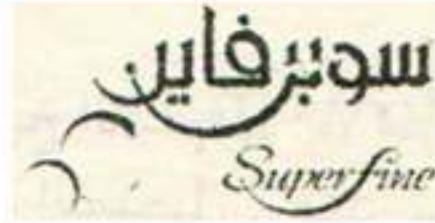 سوبر فاين
Superfine